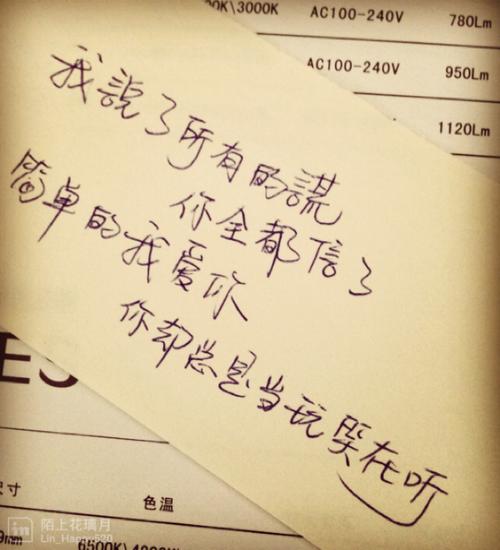 0K\3000K AC100-240V 780Lm
AC100-240V 950Lm
1120Lm
我說了所有的謊
你全都信了
简单的我爱你
你却总是当玩笑在听
ES
寸 色温
陌上花璃月
Lin_Happy520